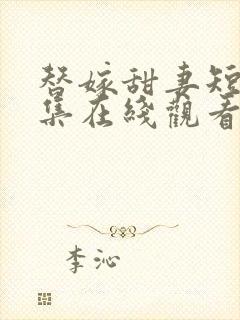 替嫁甜妻短
集在綫觀看
李沁